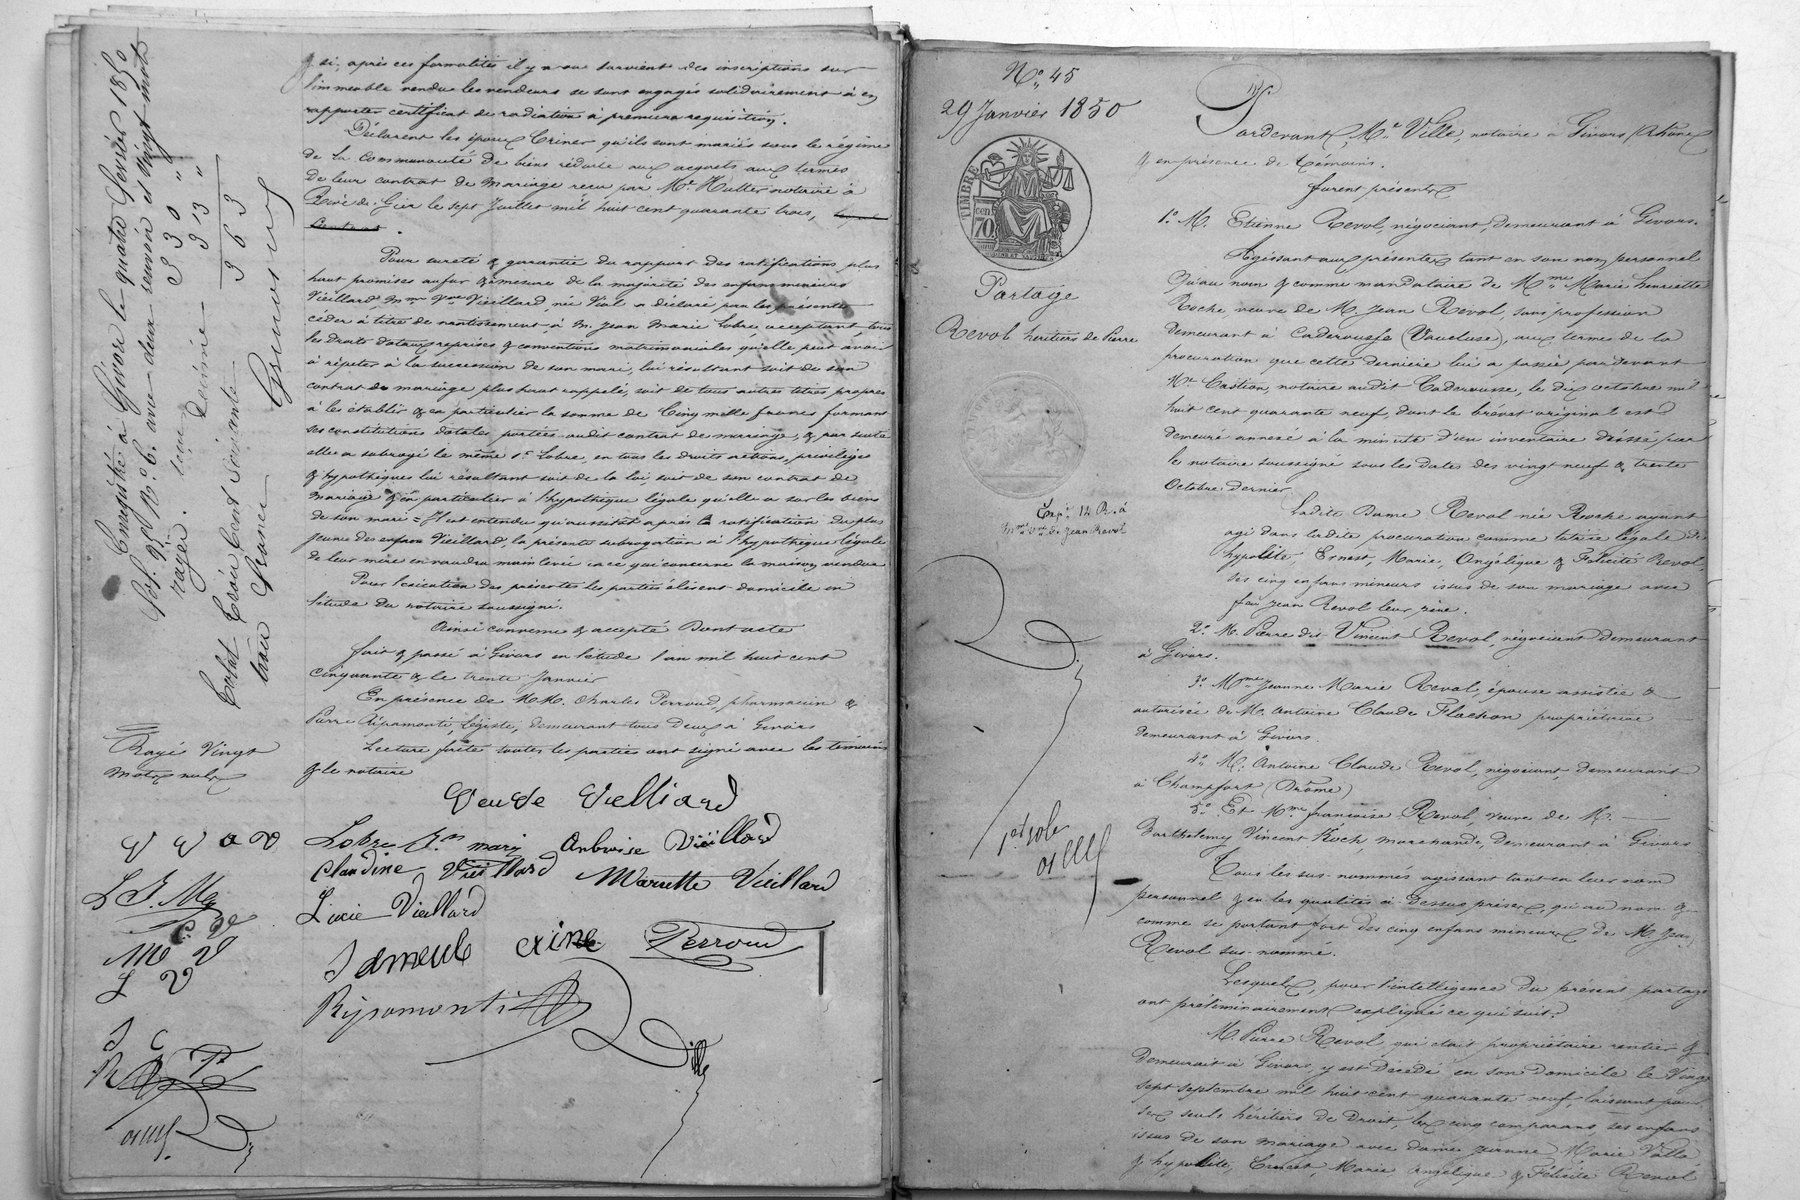 & si, après ces formalités il y a ou survient des inscriptions sur
l'immeuble vendu les vendeurs se sont engagés solidairement à en
rapporter certificat de radiation à première réquisition.
Déclarent les époux Criner qu'ils sont mariés sous le régime
de la communauté de biens réduite aux acquets aux termes
de leur contrat de mariage reçu par Me notaire à
Rive de Gier le sept Juillet mil huit cent quarante trois,
Pour sureté & garantie du rapport des ratifications plus
haut promises au fur & à mesure de la majorité des enfans mineurs
Vieillard Mme Vve Vieillard, née Vial a déclaré par les présentes
céder à titre de nantissement à M. Jean Marie Lobre acceptant tous
les droits dotaux reprises & conventions matrimoniales qu'elle peut avoir
à répéter à la succession de son mari, lui résultant soit de son
contrat de mariage plus haut rappelé, soit de tous autres titres propres
à les établir & en particulier la somme de Cinq mille francs formant
ses constitutions dotales portées audit contrat de mariage, & par suite
elle a subrogé le même Sr Lobre, en tous les droits actions, privilèges
& hypothèques lui résultant soit de la loi, soit de son contrat de
mariage & en particulier à l'hypothèque légale qu'elle a sur les biens
de son mari = Il est entendu qu'aussitot après la ratification du plus
jeune des enfans Vieillard, la présente subrogation à l'hypothèque légale
de leur mère en vaudra main levée en ce qui concerne la maison vendue
Pour l'exécution des présentes les parties élisent domicile en
l'étude du notaire soussigné.
Ainsi convenu & accepté Dont acte
fait & passé à Givors en l'étude l'an mil huit cent
cinquante & le trente Janvier
En présence de MM. Charles Perroud, pharmacien &
Pierre Ripamonti, légiste, demeurant tous deux à Givors
Lecture faite toutes les parties ont signé avec les témoins
& le notaire
Enregistré à Givors le quatre Février 1850
fol. 95 No C. 6. avec deux renvois et vingt mots
rayés. reçu
330 "
Décime 33 "
363
Total Trois Cent Soixante
trois Francs
Rayés Vingt
mots nuls
Veuve Vielliard
Lobre Jn mary Anbroise Vieillard
Claudine Vieillard Mariette Vieillard
Lucie Vieillard
Perroud
Ripamonti
Ville
L J. M
C. V
M V
L V
J C
R P
No 45
29 Janvier 1850
TIMBRE
70
Partage
Revol héritiers de Pierre
Expon 12 R. à
Mme Vve de Jean Revol
1er rôle
Pardevant, Me Ville, notaire à Givors (Rhône)
& en présence de témoins.
furent présents
1o M. Etienne Revol, négociant, demeurant à Givors.
Agissant aux présentes tant en son nom personnel
qu'au nom & comme mandataire de Mme Marie henriette
Roche, veuve de M. Jean Revol, sans profession
demeurant à Caderousse (Vaucluse), aux termes de la
procuration que cette dernière lui a passée par devant
Me Castion, notaire audit Caderousse, le dix octobre mil
huit cent quarante neuf, dont le brévet original est
demeuré annexé à la minute d'un inventaire dressé par
le notaire soussigné sous les dates des vingt neuf & trente
Octobre dernier.
Ladite Dame Revol née Roche ayant
agi dans ladite procuration comme tutrice légale de
hypolite, Ernest, Marie, Angélique & Félicité Revol,
ses cinq enfans mineurs issus de son mariage avec
feu Jean Revol leur père.
2o M. Pierre dit Vincent Revol, négociant demeurant
à Givors.
3o Mme Jeanne Marie Revol, épouse assistée &
autorisée de M. Antoine Claude Flachon propriétaire
demeurant à Givors.
4o M. Antoine Claude Revol, négociant, demeurant
à Champfort (Drôme)
5o Et Mme françoise Revol, veuve de M.
Barthelemy Vincent Koch, marchande, demeurant à Givors
Tous les sus-nommés agissant tant en leur nom
personnel & en les qualités ci dessus prises, qu'au nom &
comme se portant fort des cinq enfans mineurs de M. Jean
Revol sus-nommé.
Lesquels, pour l'intelligence du présent partage
ont préliminairement expliqué ce qui suit.
M. Pierre Revol qui était propriétaire rentier &
demeurait à Givors, y est décédé en son domicile le Vingt
sept septembre mil huit cent quarante neuf, laissant pour
ses seuls héritiers de droit, les cinq comparans, ses enfans
issus de son mariage avec dame Jeanne Marie
& hypolite, Ernest, Marie, Angélique & Félicité Revol